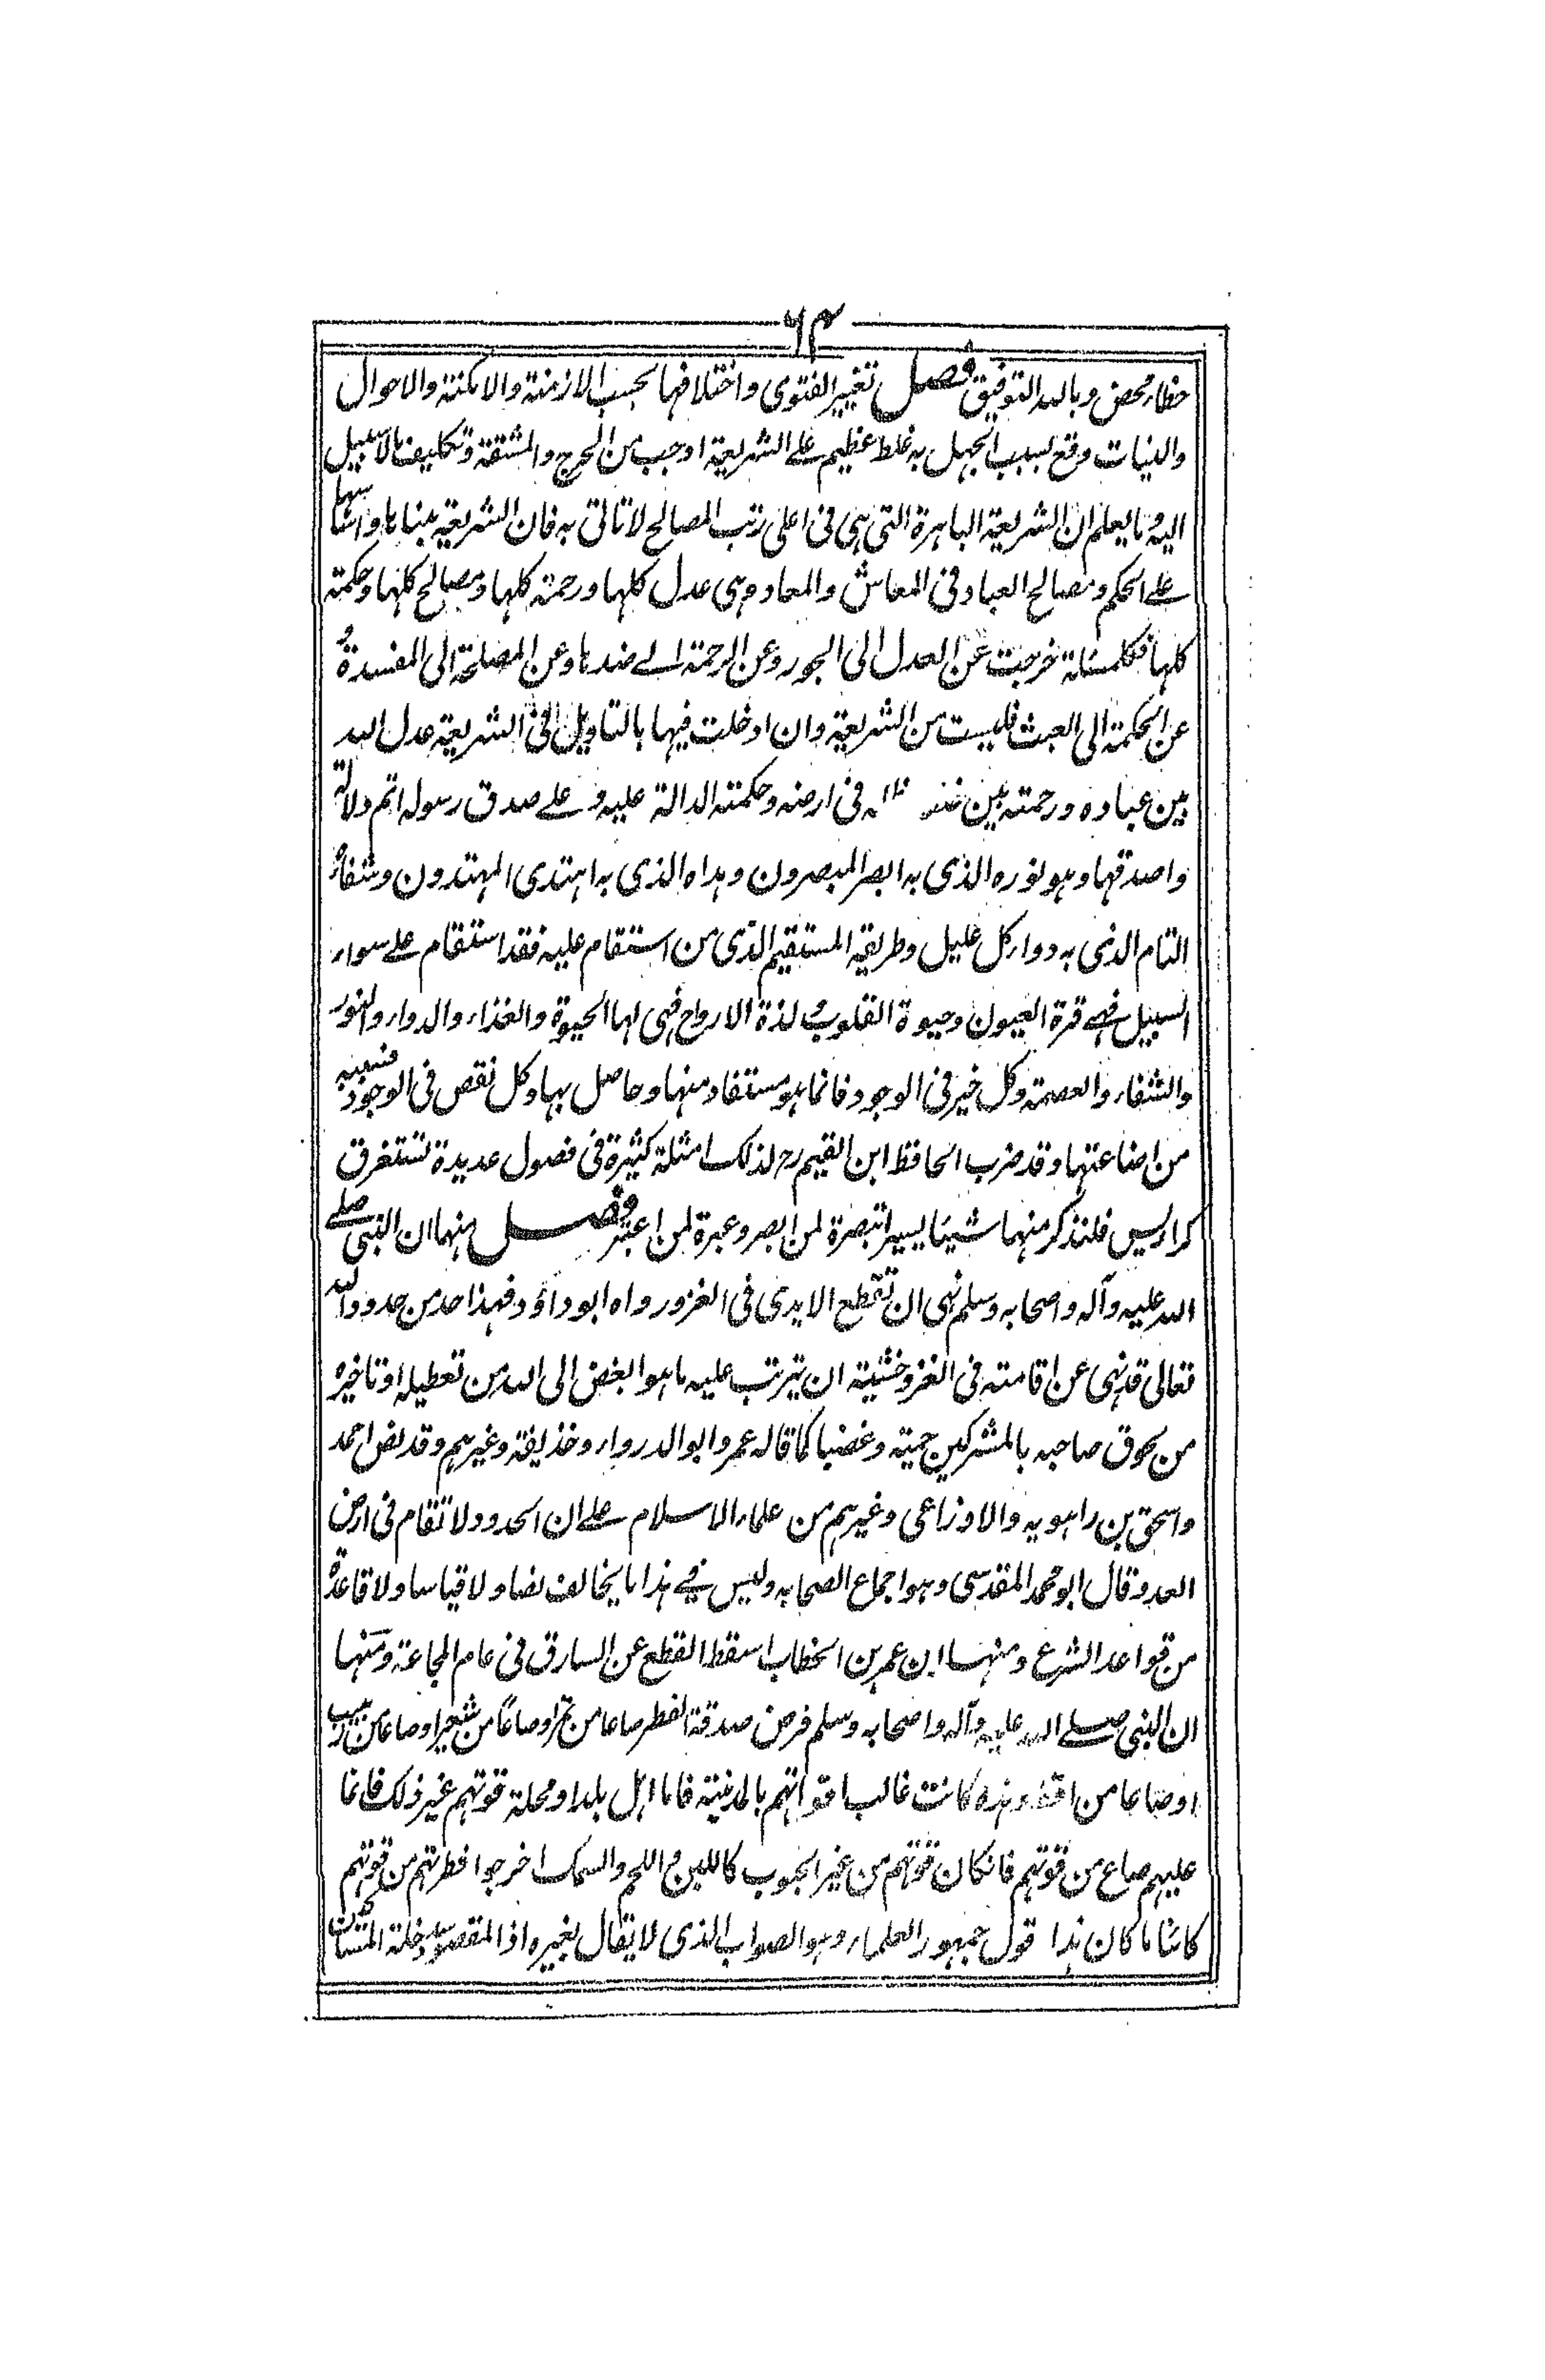 ۶۴
خطاء محض وبالله التوفيق فصل تغيير الفتوى واختلافها بحسب الازمنة والامكنة والاحوال
والنيات وقع بسبب الجهل به غلط عظيم على الشريعة اوجب من الحرج والمشقة وتكليف ما لا سبيل
اليه ما يعلم ان الشريعة الباهرة التى هى فى اعلى رتب المصالح لا تاتى به فان الشريعة مبناها واساسها
على الحكم ومصالح العباد فى المعاش والمعاد وهى عدل كلها ورحمة كلها ومصالح كلها وحكمة
كلها فكل مسئلة خرجت عن العدل الى الجور وعن الرحمة الى ضدها وعن المصلحة الى المفسدة و
عن الحكمة الى العبث فليست من الشريعة وان ادخلت فيها بالتاويل فى الشريعة عدل الله
بين عباده ورحمته بين فى ارضه وحكمته الدالة عليه وعلى صدق رسوله اتم دلالة
واصدقها وهو نوره الذى به ابصر المبصرون وهداه الذى به اهتدى المهتدون وشفاؤه
التام الذى به دواء كل عليل وطريقه المستقيم الذى من استقام عليه فقد استقام على سواء
السبيل فهى قرة العيون وحيوة القلوب و لذة الارواح فهى لها الحيوة والغذاء والدواء والنور
والشفاء والعصمة وكل خير فى الوجود فانما هو مستفاد منها وحاصل بها وكل نقص فى الوجود فسببه
من اضاعتها وقد ضرب الحافظ ابن القيم رح لذلك امثلة كثيرة فى فصول عديدة تستغرق
كراريس فلنذكر منها شيئا يسيرا تبصرة لمن ابصر وعبرة لمن اعتبر فصل منها ان النبى صلى
الله عليه وآله واصحابه وسلم نهى ان تقطع الايدى فى الغزو رواه ابو داؤد فهذا حد من حدود الله
تعالى قد نهى عن اقامته فى الغزو خشية ان يترتب عليه ما هو ابغض الى الله من تعطيله او تاخيره
من لحوق صاحبه بالمشركين حمية وغضبا كما قاله عمر وابو الدرداء وحذيفة وغيرهم وقد نص احمد
واسحق بن راهويه والاوزاعى وغيرهم من علماء الاسلام على ان الحدود لا تقام فى ارض
العدو قال ابو محمد المقدسى وهو اجماع الصحابه وليس فى هذا ما يخالف نصا ولا قياسا ولا قاعدة
من قواعد الشرع ومنها ان عمر بن الخطاب اسقط القطع عن السارق فى عام المجاعة ومنها
ان النبى صلى الله عليه وآله واصحابه وسلم فرض صدقة الفطر صاعا من تمر او صاعًا من شعير او صاعا من زبيب
او صاعا من اقط وهذه كانت غالب اقواتهم بالمدينة فاما اهل بلد او محلة قوتهم غير ذلك فانما
عليهم صاع من قوتهم فانكان قوتهم من غير الحبوب كاللبن و اللحم والسمك اخرجوا فطرتهم من قوتهم
كائنا ما كان هذا قول جمهور العلماء وهو الصواب الذى لا يقال بغيره اذ المقصود سد خلة المساكين